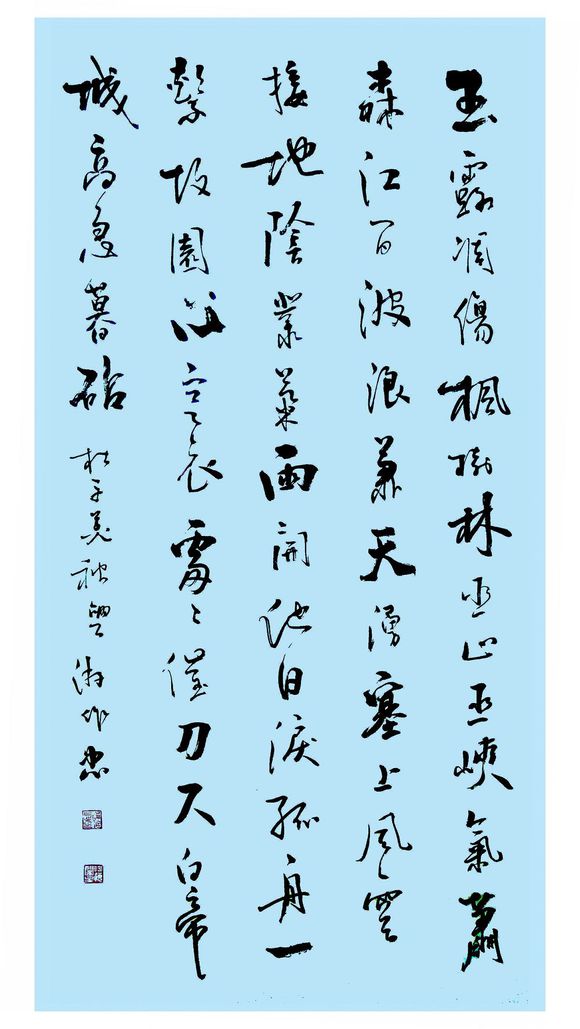 玉露凋傷楓樹林巫山巫峽氣蕭
森江間波浪兼天湧塞上風雲
接地陰叢菊兩開他日淚孤舟一
繫故園心寒衣處〻催刀尺白帝
城高急暮砧 杜子美秋興